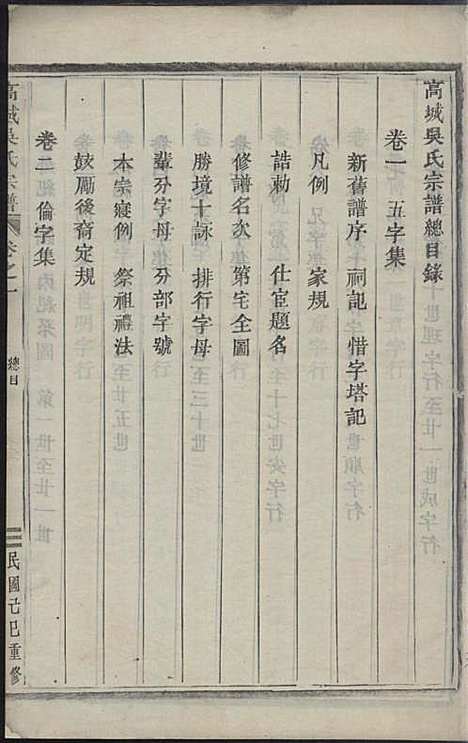 高城吳氏宗譜總目錄
卷一 五字集
新舊譜序 祠記 惜字塔記
凡例 家規
誥勅 仕宦題名
修譜名次 第宅全圖
勝境十詠 排行字母
輩分字母 分部字號
本宗寢例 祭祖禮法
鼓勵後裔定規
卷二 倫字集
高城吳氏宗譜 卷之一 總目 民國己巳重修